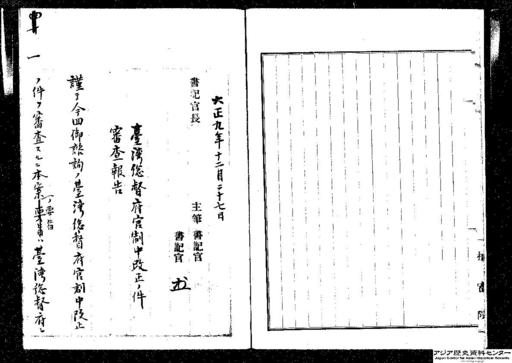 大正九年十二月二十七日
書記官長
主筆 書記官
書記官
臺灣總督府官制中改正ノ件
審査報告
謹テ今回御諮詢ノ臺灣總督府官制中改正
ノ件ヲ審査スルニ本案ノ要旨ハ臺灣總督府ニ
樞密院
アジア歴史資料センター
Japan Center for Asian Historical Records